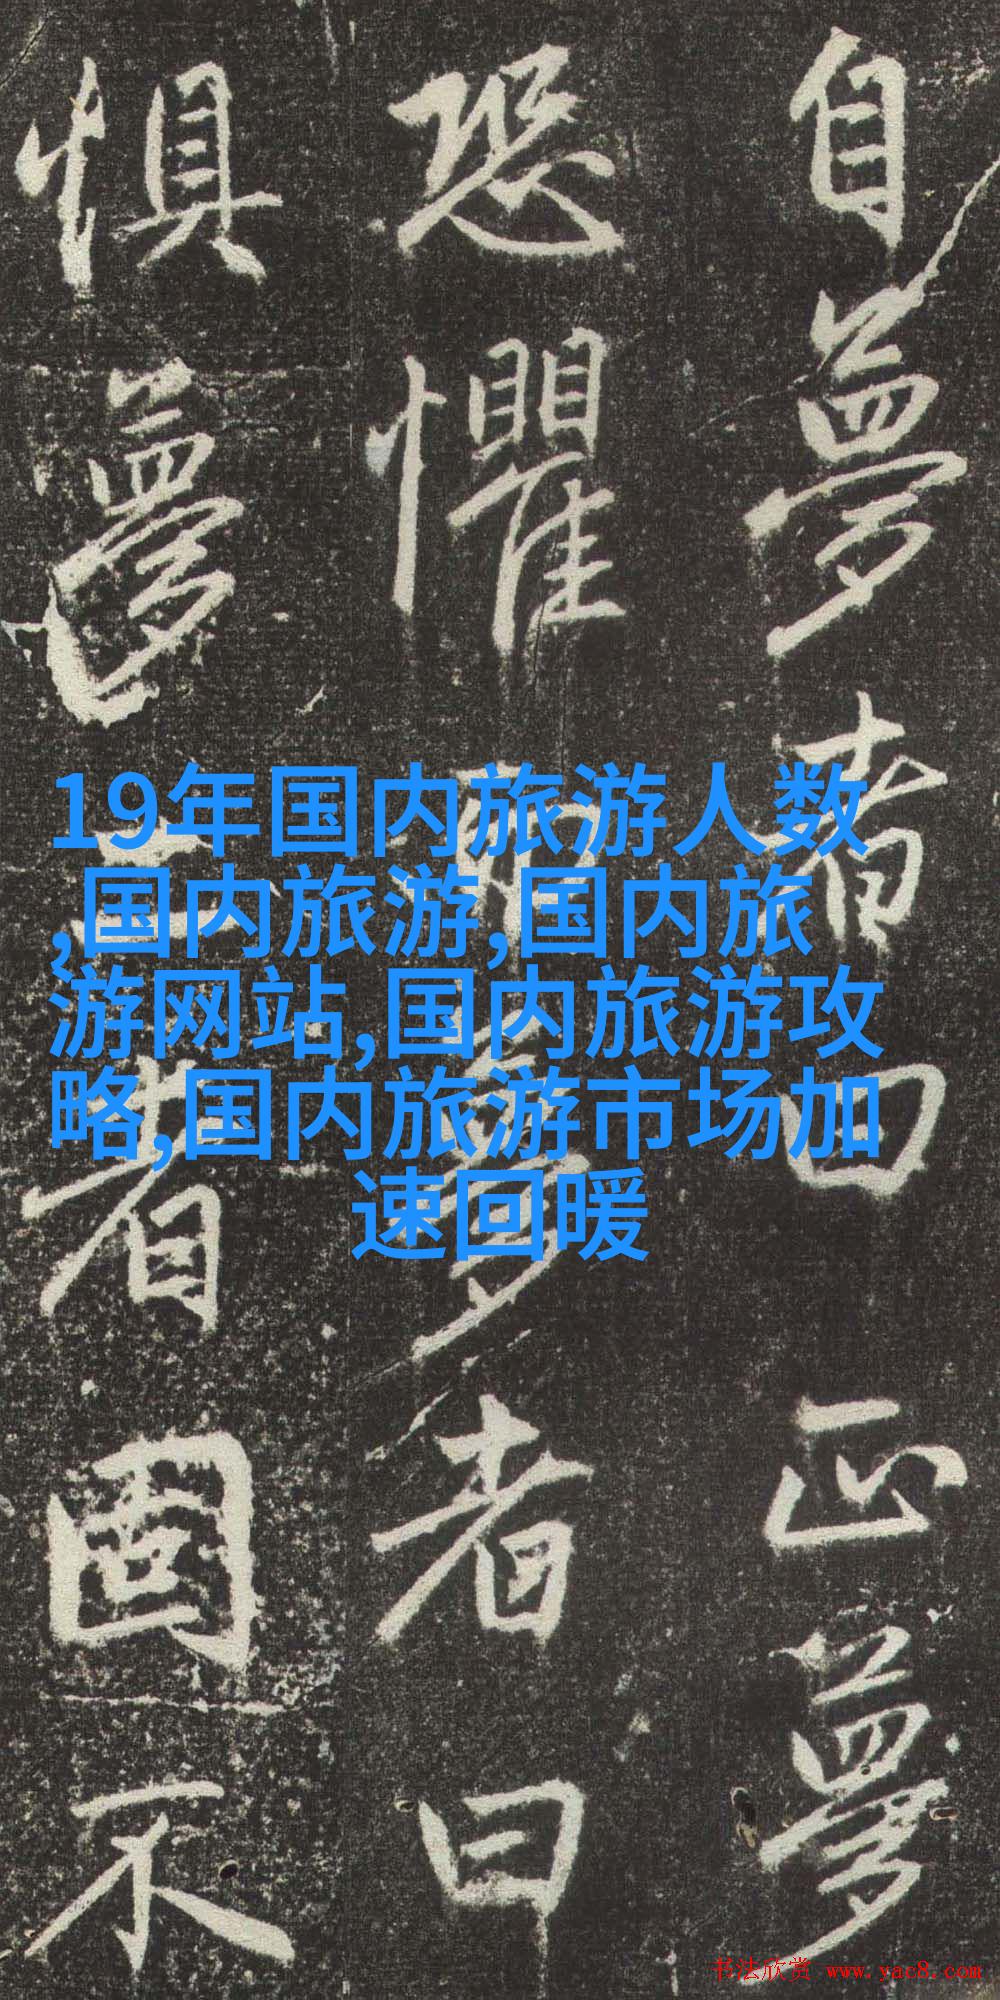 自夢者曰正夢
恐懼夢者曰
惧夢二者固不
19年国内旅游人数
,国内旅游,国内旅
游网站,国内旅游攻
略,国内旅游市场加
速回暖
书法欣赏 www.yac8.com